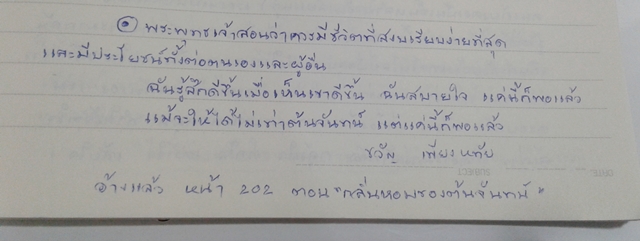 พระพุทธเจ้าสอนว่าควรมีชีวิตที่สงบเรียบง่ายที่สุด
และมีประโยชน์ทั้งต่อตนเองและผู้อื่น
ฉันรู้สึกดีขึ้นเมื่อเห็นเขาดีขึ้น ฉันสบายใจ แค่นี้ก็พอแล้ว
แม้จะให้ได้ไม่เท่าต้นจันทน์ แต่แค่นี้ก็พอแล้ว
ขวัญ เพียงหทัย
อ้างแล้ว หน้า 202 ตอน "กลิ่นหอมของต้นจันทน์"